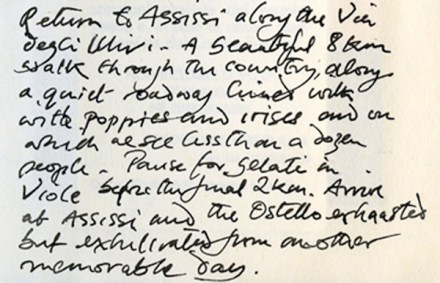 Return to Assissi along the Via
degli Ulivi. A beautiful 8 km
walk through the country, along
a quiet roadway lined with
with poppies and irises and on
which we see less than a dozen
people. Pause for gelati in
Viole before the final 2 km. Arrive
at Assissi and the Ostello exhausted
but exhilirated from another
memorable day.